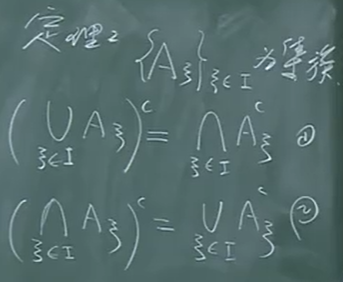 定理2
{A_ξ}_{ξ∈I} 为集族.
(⋃_{ξ∈I} A_ξ)^c = ⋂_{ξ∈I} A_ξ^c ①
(⋂_{ξ∈I} A_ξ)^c = ⋃_{ξ∈I} A_ξ^c ②